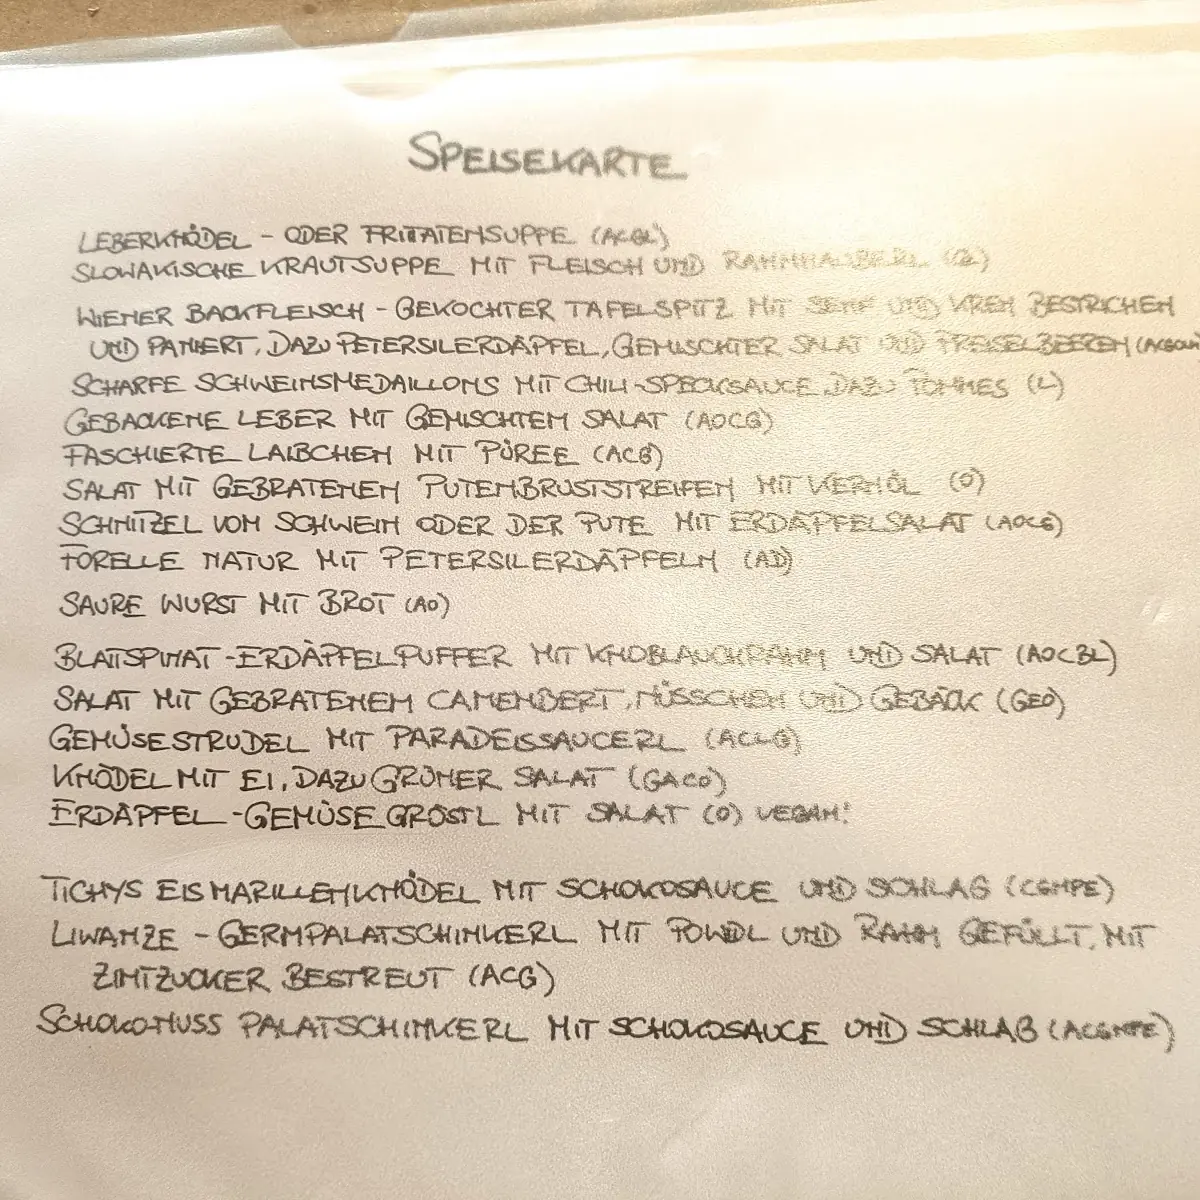 SPEISEKARTE
LEBERKNÖDEL - ODER FRITTATENSUPPE (ACGL)
SLOWAKISCHE KRAUTSUPPE MIT FLEISCH UND
WIENER BACKFLEISCH - GEKOCHTER TAFELSPITZ MIT SENF UND KREN BESTRICHEN
UND PANIERT, DAZU PETERSILERDÄPFEL, GEMISCHTER SALAT UND PREISELBEEREN
SCHARFE SCHWEINSMEDAILLONS MIT CHILI-SPECKSAUCE, DAZU POMMES (L)
GEBACKENE LEBER MIT GEMISCHTEM SALAT (AOCG)
FASCHIERTE LAIBCHEN MIT PÜREE (ACG)
SALAT MIT GEBRATENEN PUTENBRUSTSTREIFEN MIT KERNÖL (O)
SCHNITZEL VOM SCHWEIN ODER DER PUTE MIT ERDÄPFELSALAT (AOCG)
FORELLE NATUR MIT PETERSILERDÄPFELN (AD)
SAURE WURST MIT BROT (AO)
BLATTSPINAT-ERDÄPFELPUFFER MIT KNOBLAUCHRAHM UND SALAT (AOCGL)
SALAT MIT GEBRATENEM CAMENBERT, NÜSSCHEN UND GEBÄCK (GEO)
GEMÜSESTRUDEL MIT PARADEISSAUCERL (ACLG)
KNÖDEL MIT EI, DAZU GRÜNER SALAT (GACO)
ERDÄPFEL-GEMÜSEGRÖSTL MIT SALAT (O) VEGAN!
TICHYS EISMARILLENKNÖDEL MIT SCHOKOSAUCE UND SCHLAG (CGHPE)
LIWANZE - GERMPALATSCHINKERL MIT POWIDL UND RAHM GEFÜLLT, MIT
ZIMTZUCKER BESTREUT (ACG)
SCHOKONUSS PALATSCHINKERL MIT SCHOKOSAUCE UND SCHLAG (ACGHPE)